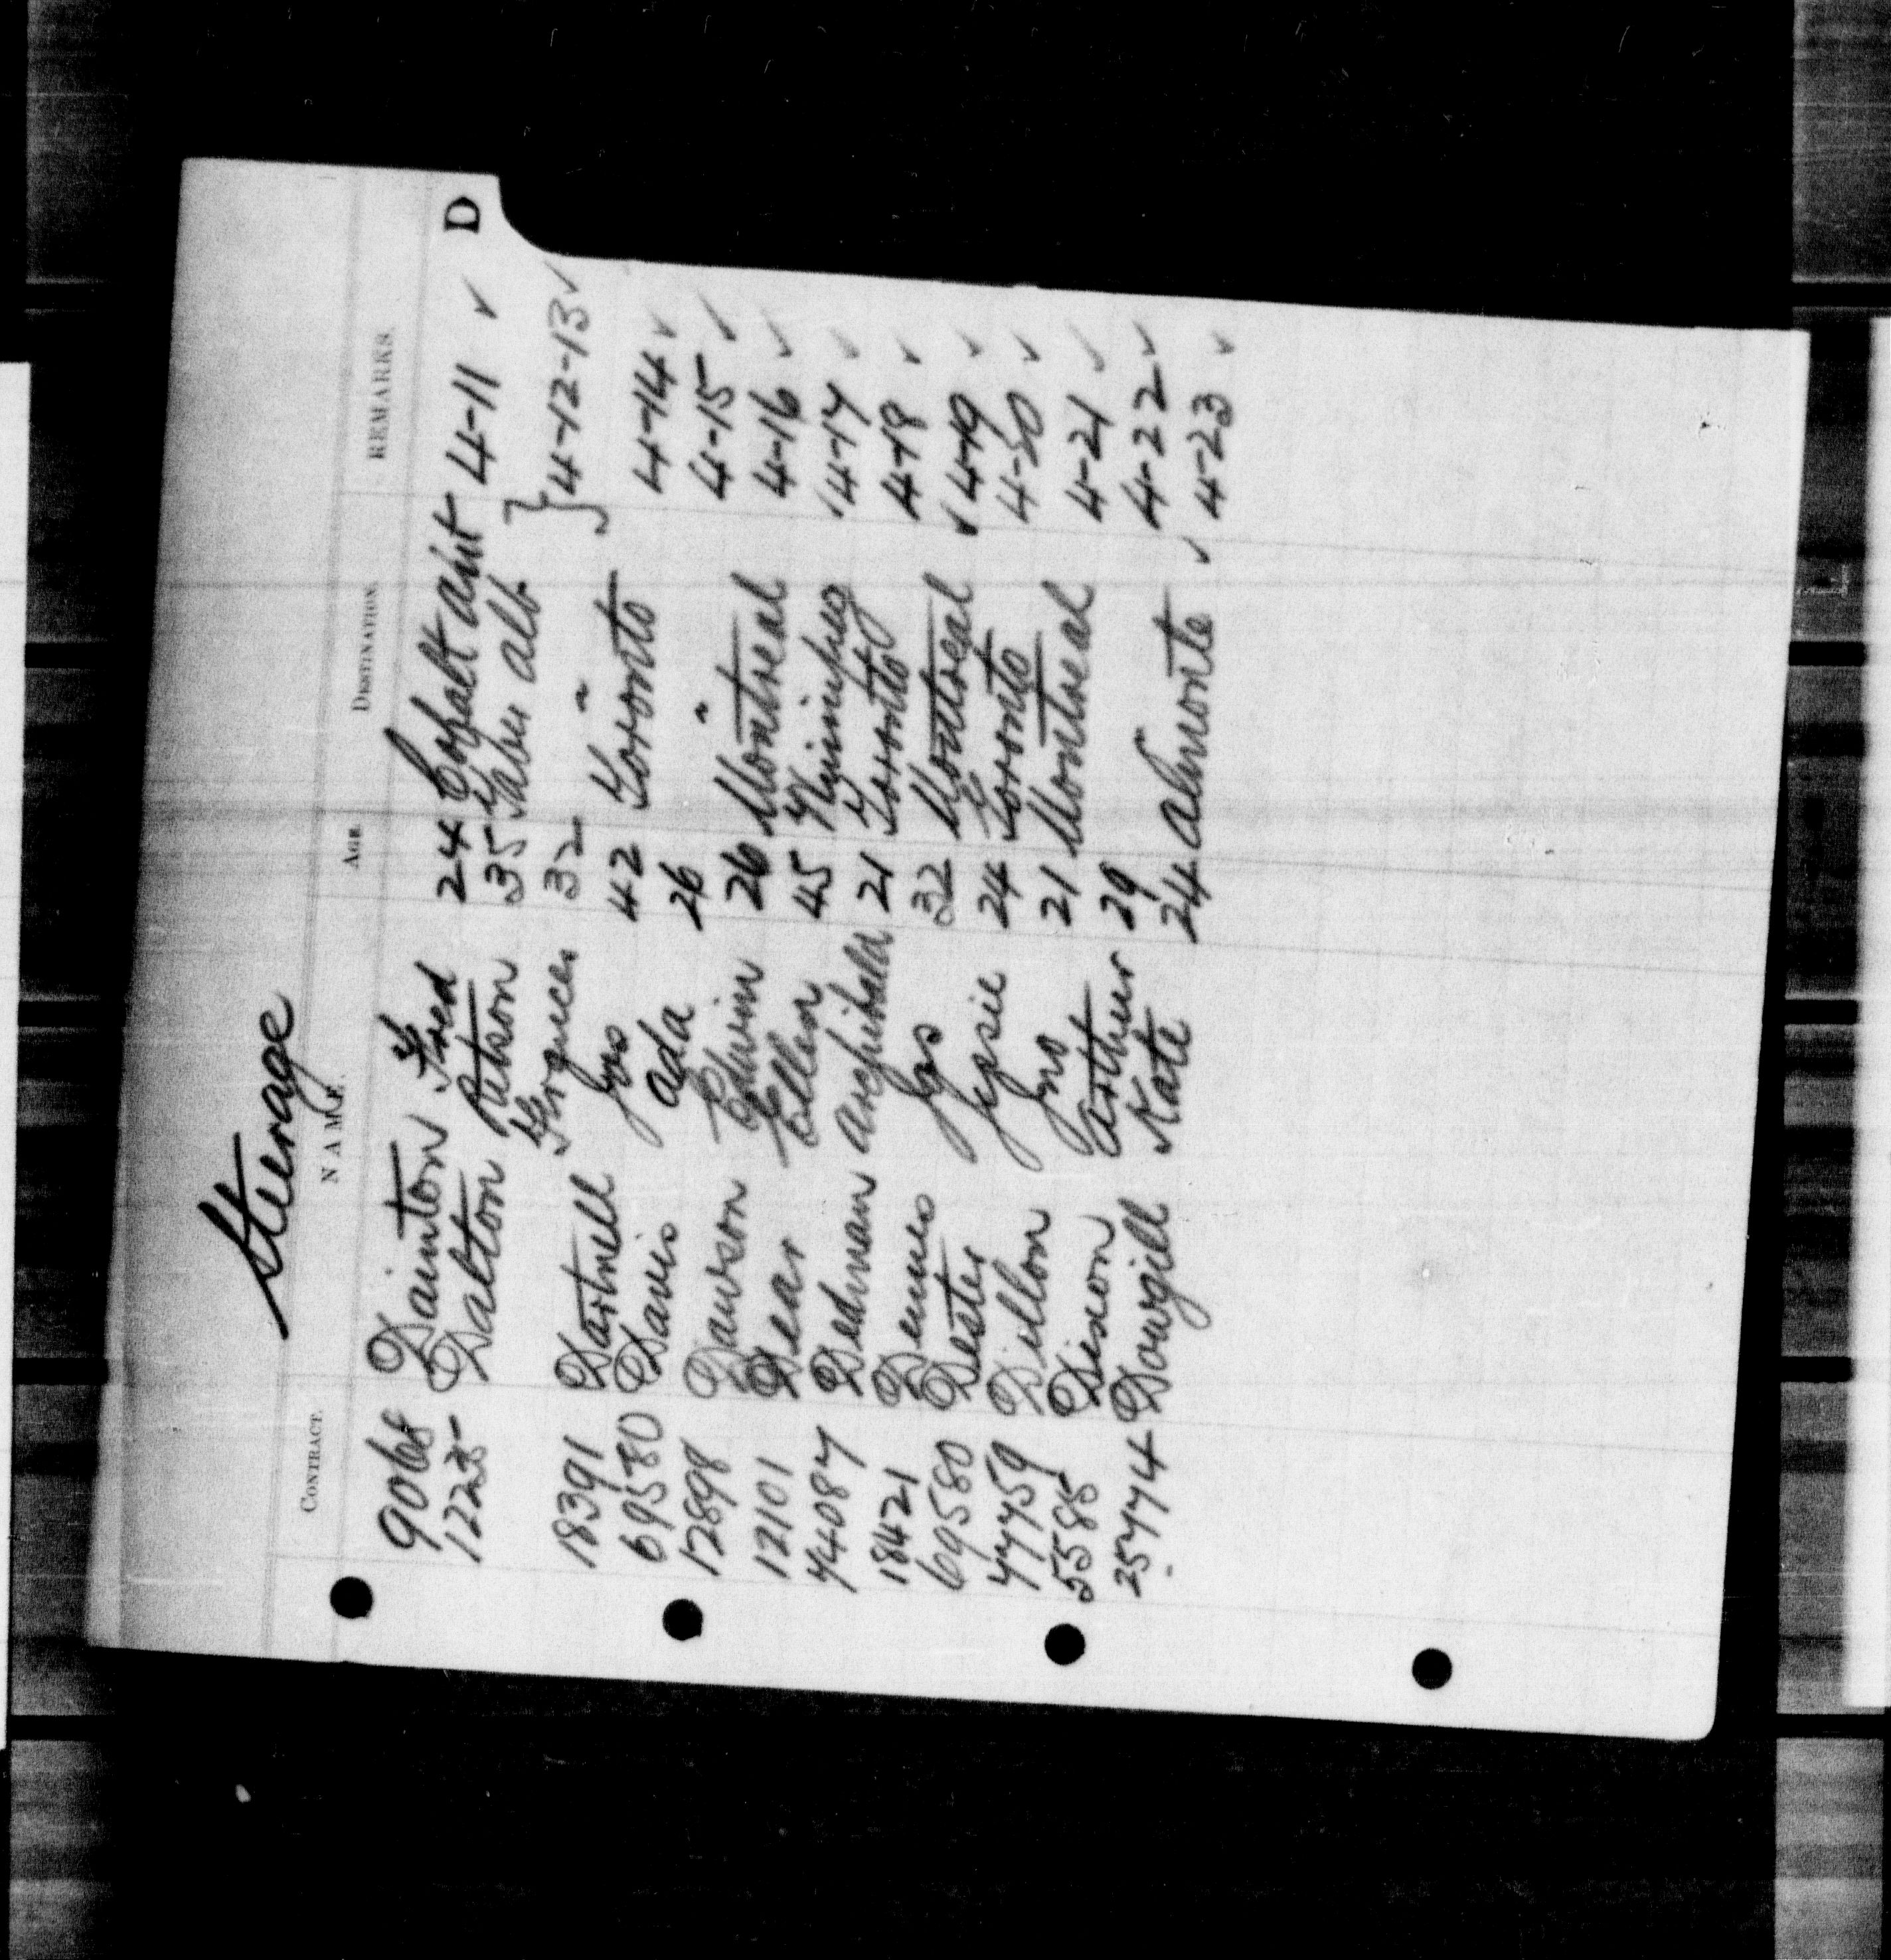 Steerage
CONTRACT. NAME. AGE. DESTINATION. REMARKS.
D
9068 Dainton Fred 24 Cobalt Ont 4-11 ✓
1225 Dalton Robson 35 Taber Alb } 4-12-13 ✓
Frances 32 "
18391 Dartnell Jno 42 Toronto 4-14 ✓
69580 Davis Ada 26 " 4-15 ✓
12898 Dawson Edwin 26 Montreal 4-16 ✓
12101 Dear Ellen 45 Winnipeg 4-17 ✓
44087 Dedman Archibald 21 Toronto 4-18 ✓
18421 Dennis Jas 32 Montreal ✓ 4-19 ✓
69580 Dexter Jessie 24 Toronto 4-20 ✓
47759 Dillon Jno 21 Montreal 4-21 ✓
5585 Dixon Arthur 29 " 4-22 ✓
25774 Dowgill Kate 24 Almonte ✓ 4-23 ✓